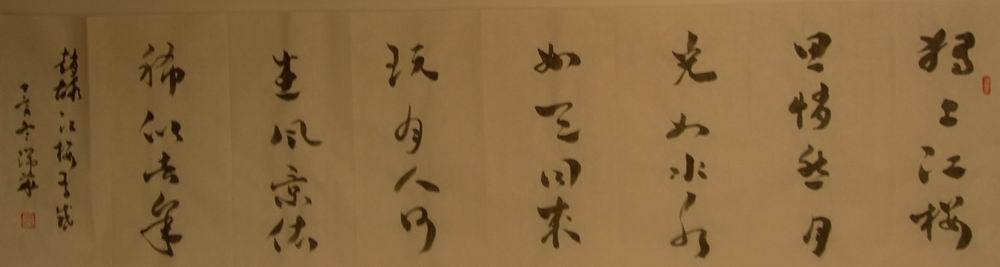 獨上江樓
思悄然月
光如水水
如天同來
玩月人何
在風景依
稀似去年
趙嘏江樓有感
丁亥冬